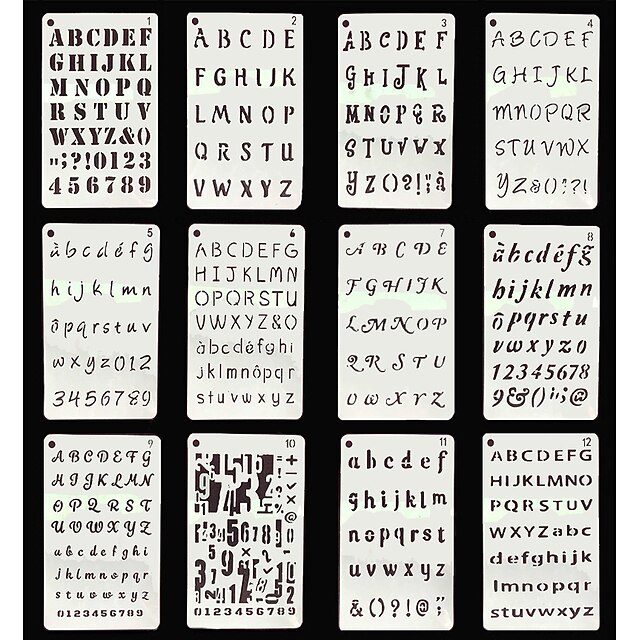 1
ABCDEF
GHIJKL
MNOPQ
RSTUV
WXYZ&()
";?!0123
456789
2
ABCDE
FGHIJK
LMNOP
QRSTU
VWXYZ
3
ABCDEF
GHIJKL
MNOPQR
STUVWX
YZ()?!";à
4
ABCDEF
GHIJKL
MNOPQR
STUVWX
YZ&();?!
5
àbcdéfg
hijklmn
ôpqrstuv
wxyz012
3456789
6
ABCDEFG
HIJKLMN
OPQRSTU
VWXYZ&()
àbcdéfghi
jklmnôpqr
stuvwxyz
7
ABCDE
FGHIJK
LMNOP
QRSTU
VWXYZ
8
àbcdéfg
hijklmn
ôpqrstu
vwxyz0
12345678
9&()";@
9
ABCDEFG
HIJKLMN
OPQRST
UVWXYZ
abcdefghi
jklmnopqr
stuvwxyz
0123456789
10
345678
0123456789
11
abcdef
ghijklm
nopqrst
uvwxyz
&()?!@;
12
ABCDEFG
HIJKLMNO
PQRSTUV
WXYZabc
defghijk
lmnopqr
stuvwxyz